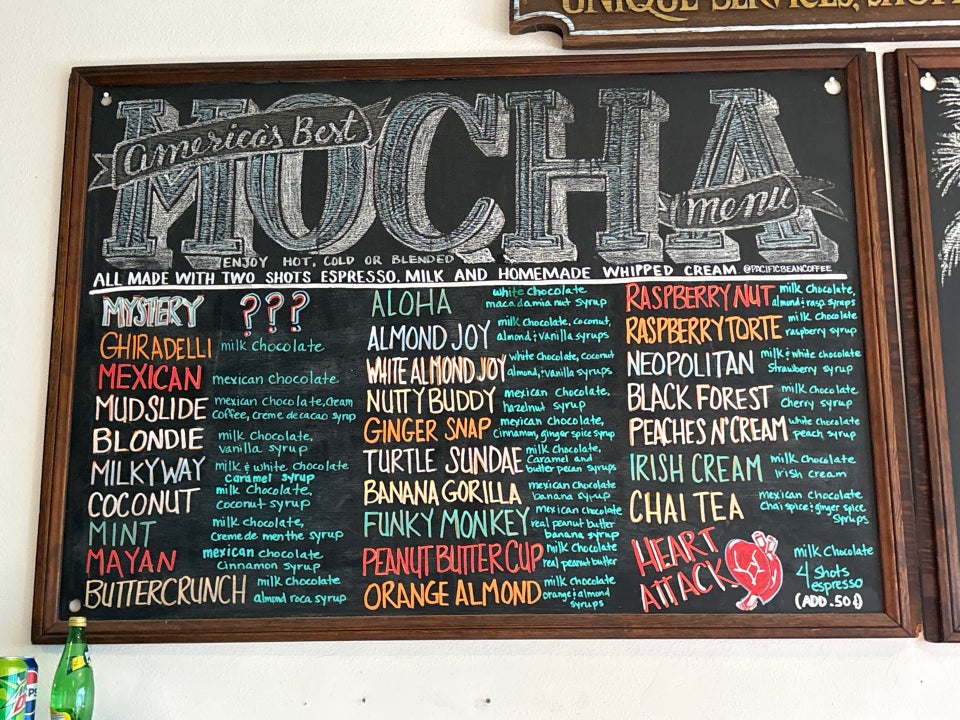 UNIQUE SERVICES, SHOP
America's Best
MOCHA
menu
ENJOY HOT, COLD OR BLENDED
ALL MADE WITH TWO SHOTS ESPRESSO, MILK AND HOMEMADE WHIPPED CREAM @PACIFICBEANCOFFEE
MYSTERY ???
GHIRADELLI milk chocolate
MEXICAN mexican chocolate
MUDSLIDE mexican chocolate, cream
coffee, creme de cacao syrup
BLONDIE milk chocolate,
vanilla syrup
MILKYWAY milk & white chocolate
caramel syrup
COCONUT milk chocolate,
coconut syrup
MINT milk chocolate,
creme de menthe syrup
MAYAN mexican chocolate
cinnamon syrup
BUTTERCRUNCH milk chocolate
almond roca syrup
ALOHA white chocolate
macadamia nut syrup
ALMOND JOY milk chocolate, coconut,
almond & vanilla syrups
WHITE ALMOND JOY white chocolate, coconut
almond, & vanilla syrups
NUTTY BUDDY mexican chocolate,
hazelnut syrup
GINGER SNAP mexican chocolate,
cinnamon, ginger spice syrup
TURTLE SUNDAE milk chocolate,
caramel and
butter pecan syrups
BANANA GORILLA mexican chocolate
banana syrup
FUNKY MONKEY mexican chocolate
real peanut butter
banana syrup
PEANUT BUTTER CUP milk chocolate
real peanut butter
ORANGE ALMOND milk chocolate
orange & almond
syrups
RASPBERRY NUT milk chocolate,
almond & rasp syrups
RASPBERRY TORTE milk chocolate
raspberry syrup
NEOPOLITAN milk & white chocolate
strawberry syrup
BLACK FOREST milk chocolate
cherry syrup
PEACHES N' CREAM white chocolate
peach syrup
IRISH CREAM milk chocolate
irish cream
CHAI TEA mexican chocolate
chai spice & ginger spice
syrups
HEART
ATTACK
milk chocolate
4 shots
espresso
(ADD .50¢)